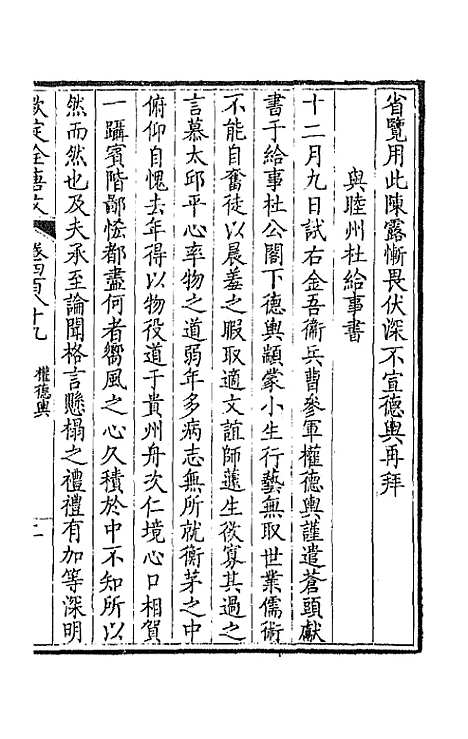 省覽用此陳露慚畏伏深不宣德輿再拜
與睦州杜給事書
十二月九日試右金吾衞兵曹參軍權德輿謹遣蒼頭獻
書于給事杜公閣下德輿顓蒙小生行藝無取世業儒術
不能自奮徒以晨羞之暇取適文誼師蘧生欲寡其過之
言慕太邱平心率物之道弱年多病志無所就衡茅之中
俯仰自愧去年得以物役道于貴州舟次仁境心口相賀
一躡賓階鄙悋都盡何者嚮風之心久積於中不知所以
然而然也及夫承至論聞格言懸榻之禮禮有加等深明
欽定全唐文
卷四百八十九
權德輿